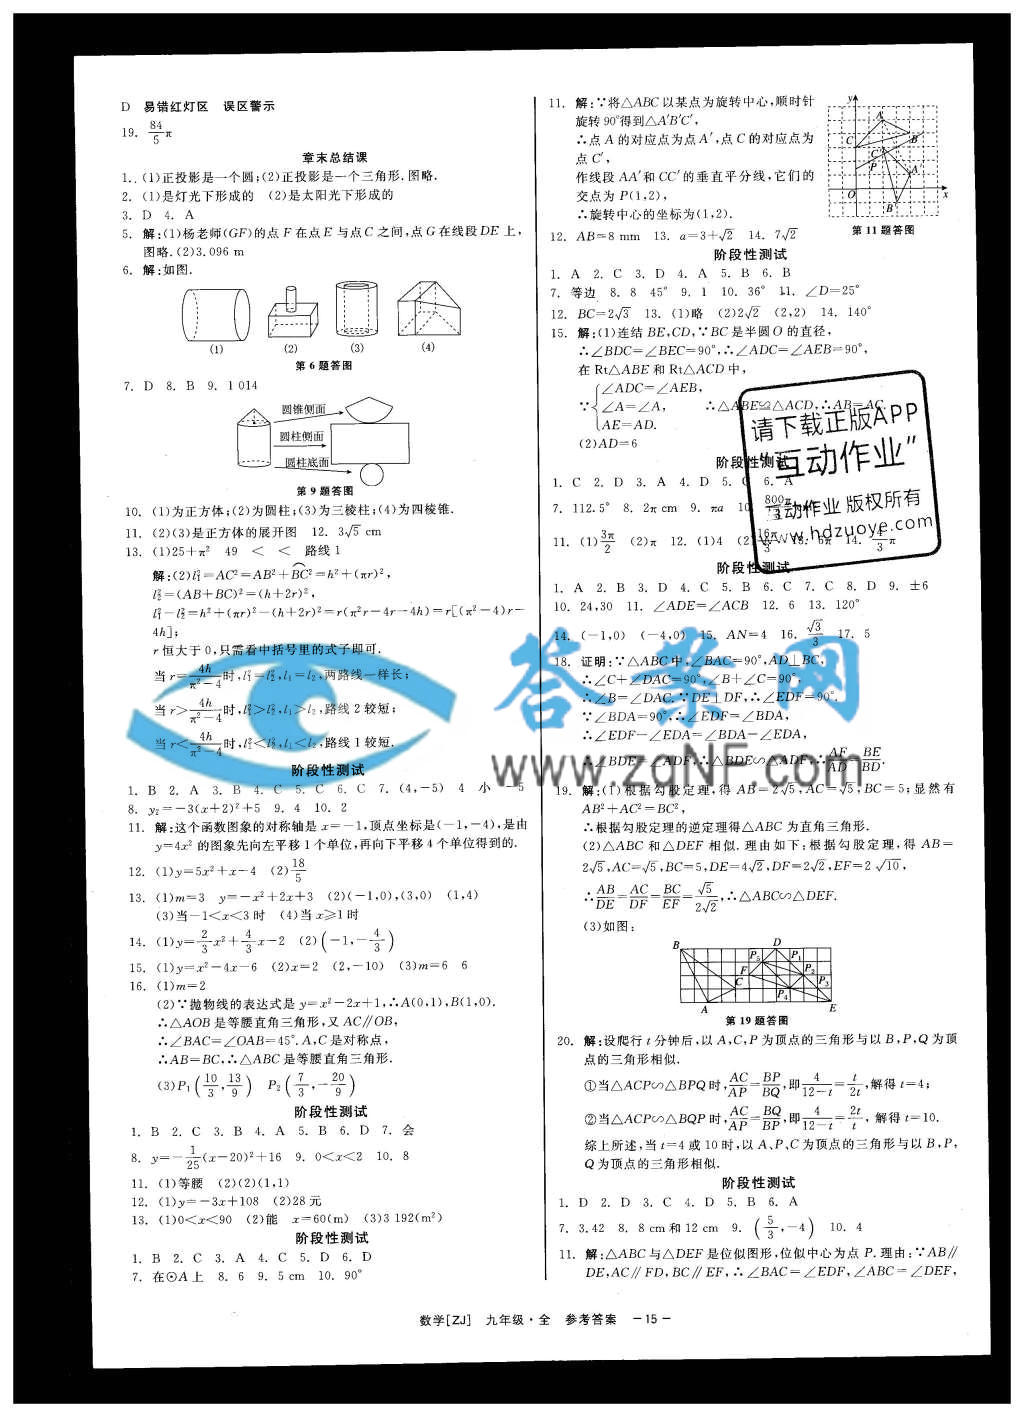 D 易错红灯区 误区警示
19. 84/5 π
章末总结课
1. (1)正投影是一个圆;(2)正投影是一个三角形.图略.
2. (1)是灯光下形成的 (2)是太阳光下形成的
3. D 4. A
5. 解:(1)杨老师(GF)的点F在点E与点C之间,点G在线段DE上,
图略.(2)3.096 m
6. 解:如图.
(1) (2) (3) (4)
第6题答图
7. D 8. B 9. 1 014
圆锥侧面
圆柱侧面
圆柱底面
第9题答图
10. (1)为正方体;(2)为圆柱;(3)为三棱柱;(4)为四棱锥.
11. (2)(3)是正方体的展开图 12. 3√5 cm
13. (1)25+π² 49 < < 路线1
解:(2)l₁²=AC²=AB²+BC²=h²+(πr)²,
l₂²=(AB+BC)²=(h+2r)²,
l₁²-l₂²=h²+(πr)²-(h+2r)²=r(π²r-4r-4h)=r[(π²-4)r-
4h];
r恒大于0,只需看中括号里的式子即可.
当r=4h/(π²-4)时,l₁²=l₂²,l₁=l₂,两路线一样长;
当r>4h/(π²-4)时,l₁²>l₂²,l₁>l₂,路线2较短;
当r<4h/(π²-4)时,l₁²<l₂²,l₁<l₂,路线1较短.
阶段性测试
1. B 2. A 3. B 4. C 5. C 6. C 7. (4,-5) 4 小 -5
8. y₂=-3(x+2)²+5 9. 4 10. 2
11. 解:这个函数图象的对称轴是x=-1,顶点坐标是(-1,-4),是由
y=4x²的图象先向左平移1个单位,再向下平移4个单位得到的.
12. (1)y=5x²+x-4 (2)18/5
13. (1)m=3 y=-x²+2x+3 (2)(-1,0),(3,0) (1,4)
(3)当-1<x<3时 (4)当x≥1时
14. (1)y=2/3 x²+4/3 x-2 (2)(-1,-4/3)
15. (1)y=x²-4x-6 (2)x=2 (2,-10) (3)m=6 6
16. (1)m=2
(2)∵抛物线的表达式是y=x²-2x+1,∴A(0,1),B(1,0).
∴△AOB是等腰直角三角形,又AC∥OB,
∴∠BAC=∠OAB=45°.A,C是对称点,
∴AB=BC,∴△ABC是等腰直角三角形.
(3)P₁(10/3,13/9) P₂(7/3,-20/9)
阶段性测试
1. B 2. C 3. B 4. A 5. B 6. D 7. 会
8. y=-1/25(x-20)²+16 9. 0<x<2 10. 8
11. (1)等腰 (2)(2)(1,1)
12. (1)y=-3x+108 (2)28元
13. (1)0<x<90 (2)能 x=60(m) (3)3 192(m²)
阶段性测试
1. B 2. C 3. A 4. C 5. D 6. D
7. 在⊙A上 8. 6 9. 5 cm 10. 90°
11. 解:∵将△ABC以某点为旋转中心,顺时针
旋转90°得到△A′B′C′,
∴点A的对应点为点A′,点C的对应点为
点C′,
作线段AA′和CC′的垂直平分线,它们的
交点为P(1,2),
∴旋转中心的坐标为(1,2).
y A B C C′ P A′ O x B′
第11题答图
12. AB=8 mm 13. a=3+√2 14. 7√2
阶段性测试
1. A 2. C 3. D 4. A 5. B 6. B
7. 等边 8. 8 45° 9. 1 10. 36° 11. ∠D=25°
12. BC=2√3 13. (1)略 (2)2√2 (2,2) 14. 140°
15. 解:(1)连结BE,CD,∵BC是半圆O的直径,
∴∠BDC=∠BEC=90°,∴∠ADC=∠AEB=90°,
在Rt△ABE和Rt△ACD中,
∠ADC=∠AEB,
∵ ∠A=∠A, ∴△ABE≌△ACD,∴AB=AC.
AE=AD.
(2)AD=6
阶段性测试
1. C 2. D 3. A 4. D 5. C 6. A
7. 112.5° 8. 2π cm 9. πa 10. 800π/3
11. (1)3π/2 (2)π 12. (1)4 (2)16π/3 13. 6π 14. 4/3 π
阶段性测试
1. A 2. B 3. D 4. C 5. B 6. C 7. C 8. D 9. ±6
10. 24,30 11. ∠ADE=∠ACB 12. 6 13. 120°
14. (-1,0) (-4,0) 15. AN=4 16. √3/3 17. 5
18. 证明:∵△ABC中,∠BAC=90°,AD⊥BC,
∴∠C+∠DAC=90°,∠B+∠C=90°.
∴∠B=∠DAC.∵DE⊥DF,∴∠EDF=90°.
∵∠BDA=90°,∴∠EDF=∠BDA,
∴∠EDF-∠EDA=∠BDA-∠EDA,
∴∠BDE=∠ADF,∴△BDE∽△ADF,∴AF/AD=BE/BD.
19. 解:(1)根据勾股定理,得AB=2√5,AC=√5,BC=5;显然有
AB²+AC²=BC²,
∴根据勾股定理的逆定理得△ABC为直角三角形.
(2)△ABC和△DEF相似.理由如下:根据勾股定理,得AB=
2√5,AC=√5,BC=5,DE=4√2,DF=2√2,EF=2√10,
∴AB/DE=AC/DF=BC/EF=√5/2√2,∴△ABC∽△DEF.
(3)如图:
B D P₁ P₅ F P₂ C P₃ P₄ A E
第19题答图
20. 解:设爬行t分钟后,以A,C,P为顶点的三角形与以B,P,Q为顶
点的三角形相似.
①当△ACP∽△BPQ时,AC/AP=BP/BQ,即4/(12-t)=t/2t,解得t=4;
②当△ACP∽△BQP时,AC/AP=BQ/BP,即4/(12-t)=2t/t,解得t=10.
综上所述,当t=4或10时,以A、P、C为顶点的三角形与以B,P,
Q为顶点的三角形相似.
阶段性测试
1. D 2. D 3. C 4. D 5. B 6. A
7. 3.42 8. 8 cm和12 cm 9. (5/3,-4) 10. 4
11. 解:△ABC与△DEF是位似图形,位似中心为点P.理由:∵AB∥
DE,AC∥FD,BC∥EF,∴∠BAC=∠EDF,∠ABC=∠DEF,
数学[ZJ] 九年级·全 参考答案 -15-
请下载正版APP
“互动作业”
互动作业 版权所有
www.hdzuoye.com
答案网
www.zqNF.com